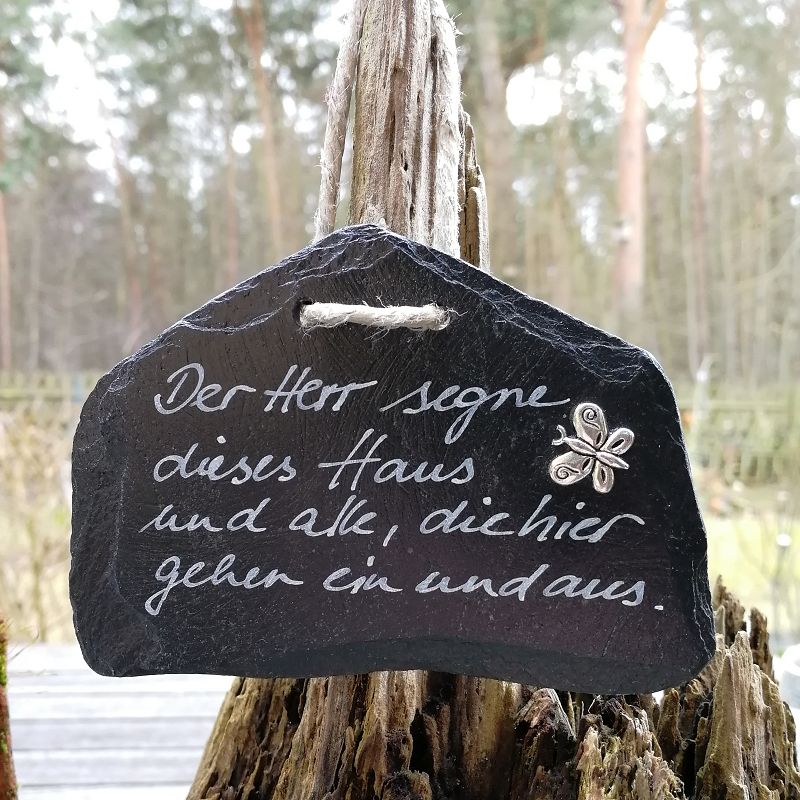 Der Herr segne
dieses Haus
und alle, die hier
gehen ein und aus.